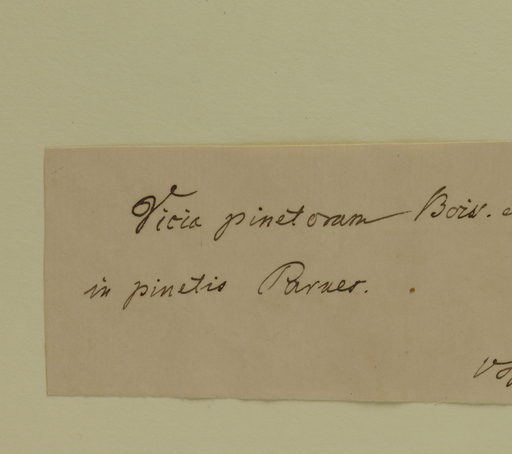 Vicia pinetorum Boiss.
in pinetis Parnes.